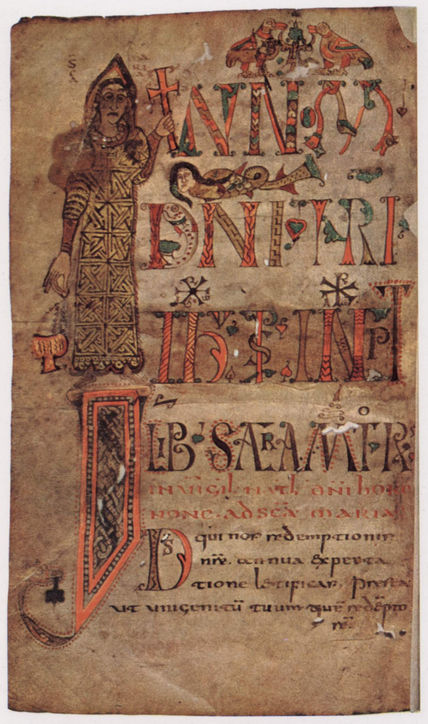 INNOM
DNI NRI
INPT
LIB SACRAMTOR
IN VIGIL NATL DNI HORA
NONA AD SCA MARIA
DS qui nos redemptionis
nre annua expecta
tione letificas presta
ut unigenitu tuum que redempto
re